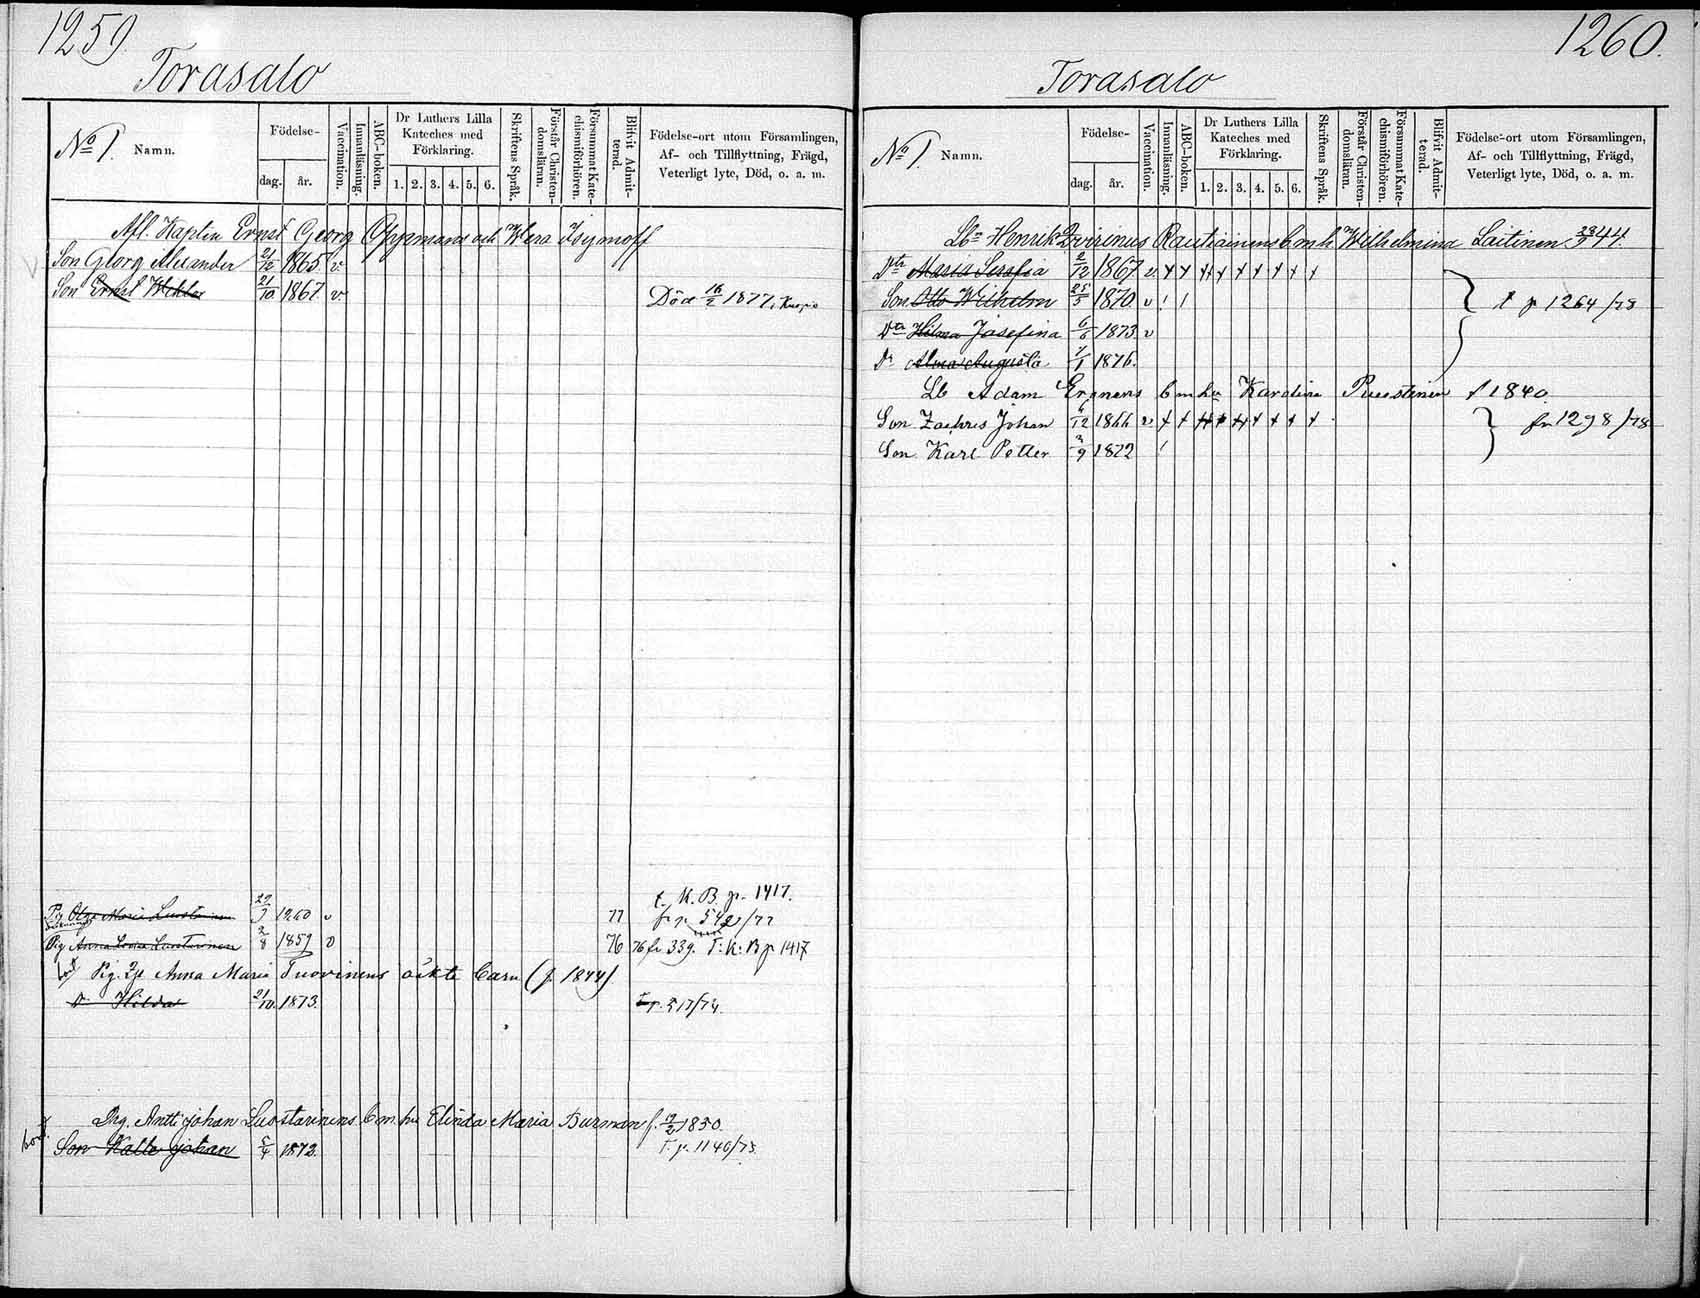 1259
Torasalo
No 1. Namn.
Födelse-
dag.
år.
Vaccination.
Innanläsning.
ABC-boken.
Dr Luthers Lilla
Kateches med
Förklaring.
1. 2. 3. 4. 5. 6.
Skriftens Språk.
Förstår Christen-
domsläran.
Försummat Kate-
chismiförhören.
Blifvit Admit-
terad.
Födelse-ort utom Församlingen,
Af- och Tillflyttning, Frägd,
Veterligt lyte, Död, o. a. m.
Afl. Kapten Ernst Georg Oppmans och Wera
Son Georg Alexander 21/12 1865 v.
Son Ernst Wiktor 21/10 1867 v Död 16/2 1877 i Kuopio
t. K. B. p. 1417.
Pig Olga Maria Luostarinen 1860 v 77 fr p 542/77
Pig Anna Lovisa Luostarinen 2/8 1859 v 76 76 fr. 339. T. K: B p 1417
Pig. Anna Maria Tuovinens oäkta barn (f. 1844)
D. Hilda 21/10. 1873. t p. 517/74.
Drg. Antti Johan Luostarinens b m hu Elinda Maria Burman f. 19/2 1850.
Son Kalle Johan 5/4 1872. T. p. 1140/75
1260.
Torasalo
No 1. Namn.
Födelse-
dag.
år.
Vaccination.
Innanläsning.
ABC-boken.
Dr Luthers Lilla
Kateches med
Förklaring.
1. 2. 3. 4. 5. 6.
Skriftens Språk.
Förstår Christen-
domsläran.
Försummat Kate-
chismiförhören.
Blifvit Admit-
terad.
Födelse-ort utom Församlingen,
Af- och Tillflyttning, Frägd,
Veterligt lyte, Död, o. a. m.
Lbn Henrik Qvirinus Rautiainens b m h Wilhelmina Laitinen 44.
Dtr Maria Serafia 2/12 1867 v
Son Otto Wilhelm 25/5 1870 v t p 1264/78
Dtr Hilma Josefina 6/6 1873. v
Dr Alma Augusta 7/1 1876.
Lb Adam Eronens b m hu Karolina Puustinen f 1840.
Son Zachris Johan 1866 v fr 1298/78
Son Karl Petter 1872